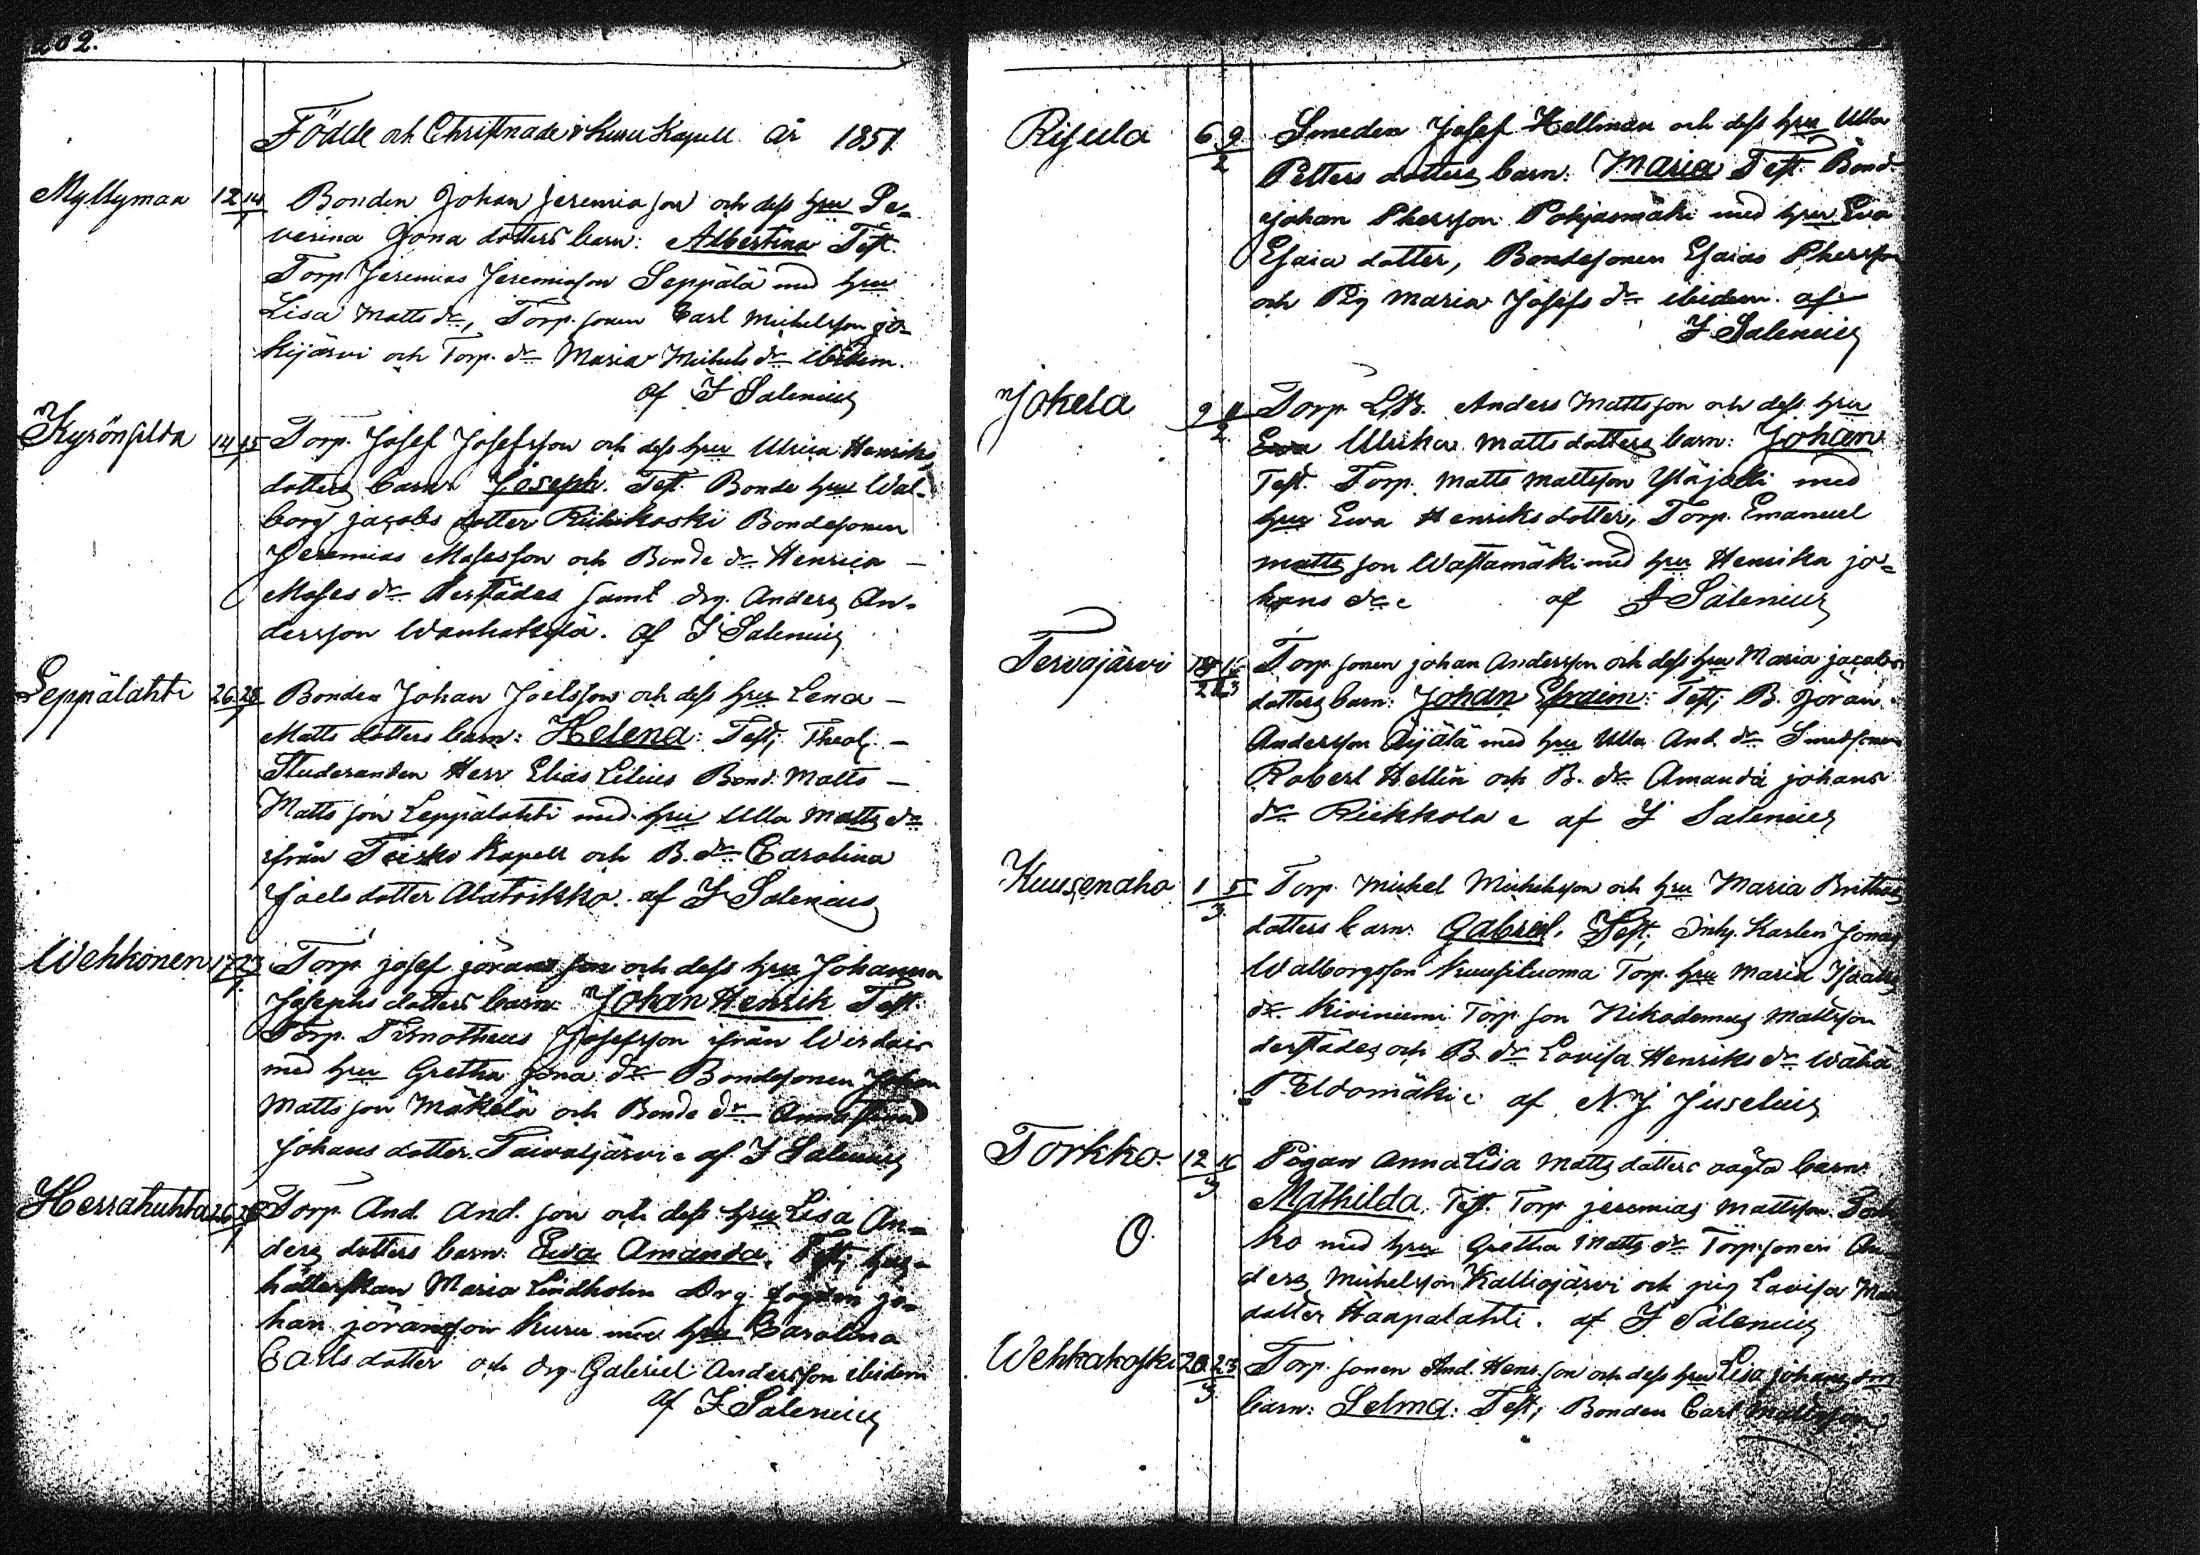 202.
Födde och Christnade i Kuru Kapell år 1851
Myllymaa 12 14/1 Bonden Johan Jeremiason och dess hru Se-
verina Jona dotters barn: Albertina Test.
Torp. Jeremias Jeremiasson Seppälä med hru
Lisa Matts dr, Torp. sonen Carl Michelsson Jo-
kijärvi och Torp. dr Maria Michels dr ibidem.
af F Salenius
Kyrönsilda 14 15/1 Torp. Josef Josefsson och dess hru Ulrica Henriks
dotters barn Joseph. Test. Bonde hru Wal-
borg Jacobs dotter Riihikoski Bondesonen
Jeremias Mosesson och Bonde dr Henrica –
Moses dr derstädes samt drg. Anders An-
dersson Wanhakylä. af F Salenius
Leppälahti 26 28/1 Bonden Johan Joelsson och dess hru Lena –
Matts dotters barn: Helena: Test; Theol. –
Studeranden Herr Elias Lilius Bond. Matts –
Matts son Leppälahti med hru Ulla Matts dr
ifrån Teisko Kapell och B. dr Carolina
Joels dotter Alatrikko. af F Salenius
Wehkonen 17 23/1 Torp. Josef Jöransson och dess hru Johanna
Josephs dotters barn Johan Henrik Test.
Torp. Timotheus Josefsson ifrån Wirdois
med hru Gretha Jona dr Bondesonen Johan
Matts son Mäkelä och Bonde dr Anna
Johans dotter Taivaljärvi. af F Salenius
Herrakuhta 26 /1 Torp. And. And. son och dess hru Lisa An-
ders dotters barn: Ewa Amanda. Test; hus-
hållerskan Maria Lindholm Drg. Jo-
han Jöransson Kuru med hru Carolina
Carls dotter och drg Gabriel Andersson ibidem
af F Salenius
Rijula 6 9/2 Smeden Josef Hellman och dess hru Ulla
Petters dotters barn: Maria Test. Bond.
Johan Phersson Pohjasmäki med hru Eva
Esaia dotter, Bondesonen Esaias Phersson
och Pig Maria Josefs dr ibidem. af
F Salenius
Jokela 9 11/2 Torp. L.B. Anders Mattsson och dess hru
Ewa Ulrika Matts dotters barn: Johan
Test. Torp. Matts Mattsson med
hru Ewa Henriks dotter, Torp. Emanuel
Matts son Wastamäki med hru Henrika Jo-
hans dr. af F Salenius
Tervajärvi Torp. sonen Johan Andersson och dess hru Maria Jacobs
dotters barn: Johan Efraim: Test; B. Jöran
Andersson Äijälä med hru Ulla And. dr Smedsonen
Robert Hellin och B. dr Amanda Johans
dr Riekkola. af F Salenius
Kuusenaho 1 5/3 Torp. Mickel Michelsson och hru Maria Brithas
dotters barn: Gabriel. Test; Inhy. Karlen Jonas
Walborgsson Kuusiluoma Torp. hru Maria Isaks
dr Kiviniemi Torp. son Nikodemus Mattsson
derstädes och B. dr Lovisa Henriks dr Wähä
Peldomäki. af N. J. Juselius
Torkko. 12 16/3 Pigan Anna Lisa Matts dotters oägta barn:
Mathilda. Test. Torp. Jeremias Mattsson Tork
O. ko med hru Gretha Matts dr Torp. sonen An-
ders Michelsson Kalliojärvi och pig Lovisa
dotter Haapalahti. af F Salenius
Wehkakoski 20 23/3 Torp. sonen And. Henr. son och dess hru Lisa Johans
barn: Selma: Test; Bonden Carl Mattsson